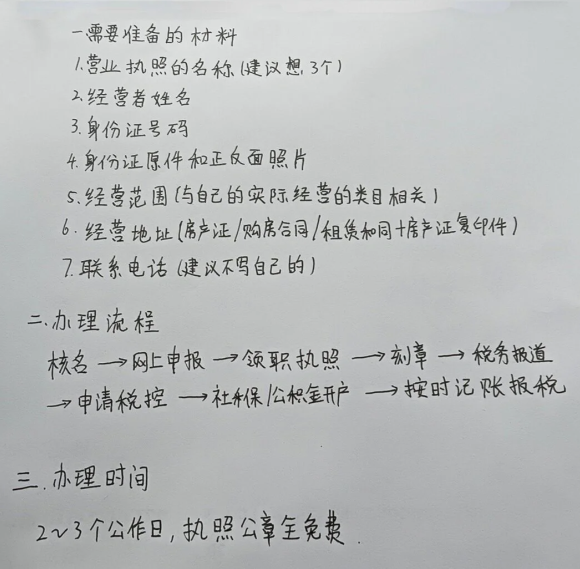 一需要准备的材料
1.营业执照的名称(建议想3个)
2.经营者姓名
3.身份证号码
4.身份证原件和正反面照片
5.经营范围(与自己的实际经营的类目相关)
6.经营地址(房产证/购房合同/租赁和同+房产证复印件)
7.联系电话(建议不写自己的)
二.办理流程
核名→网上申报→领职执照→刻章→税务报道
→申请税控→社保/公积金开户→按时记账报税
三.办理时间
2~3个公作日,执照公章全免费.